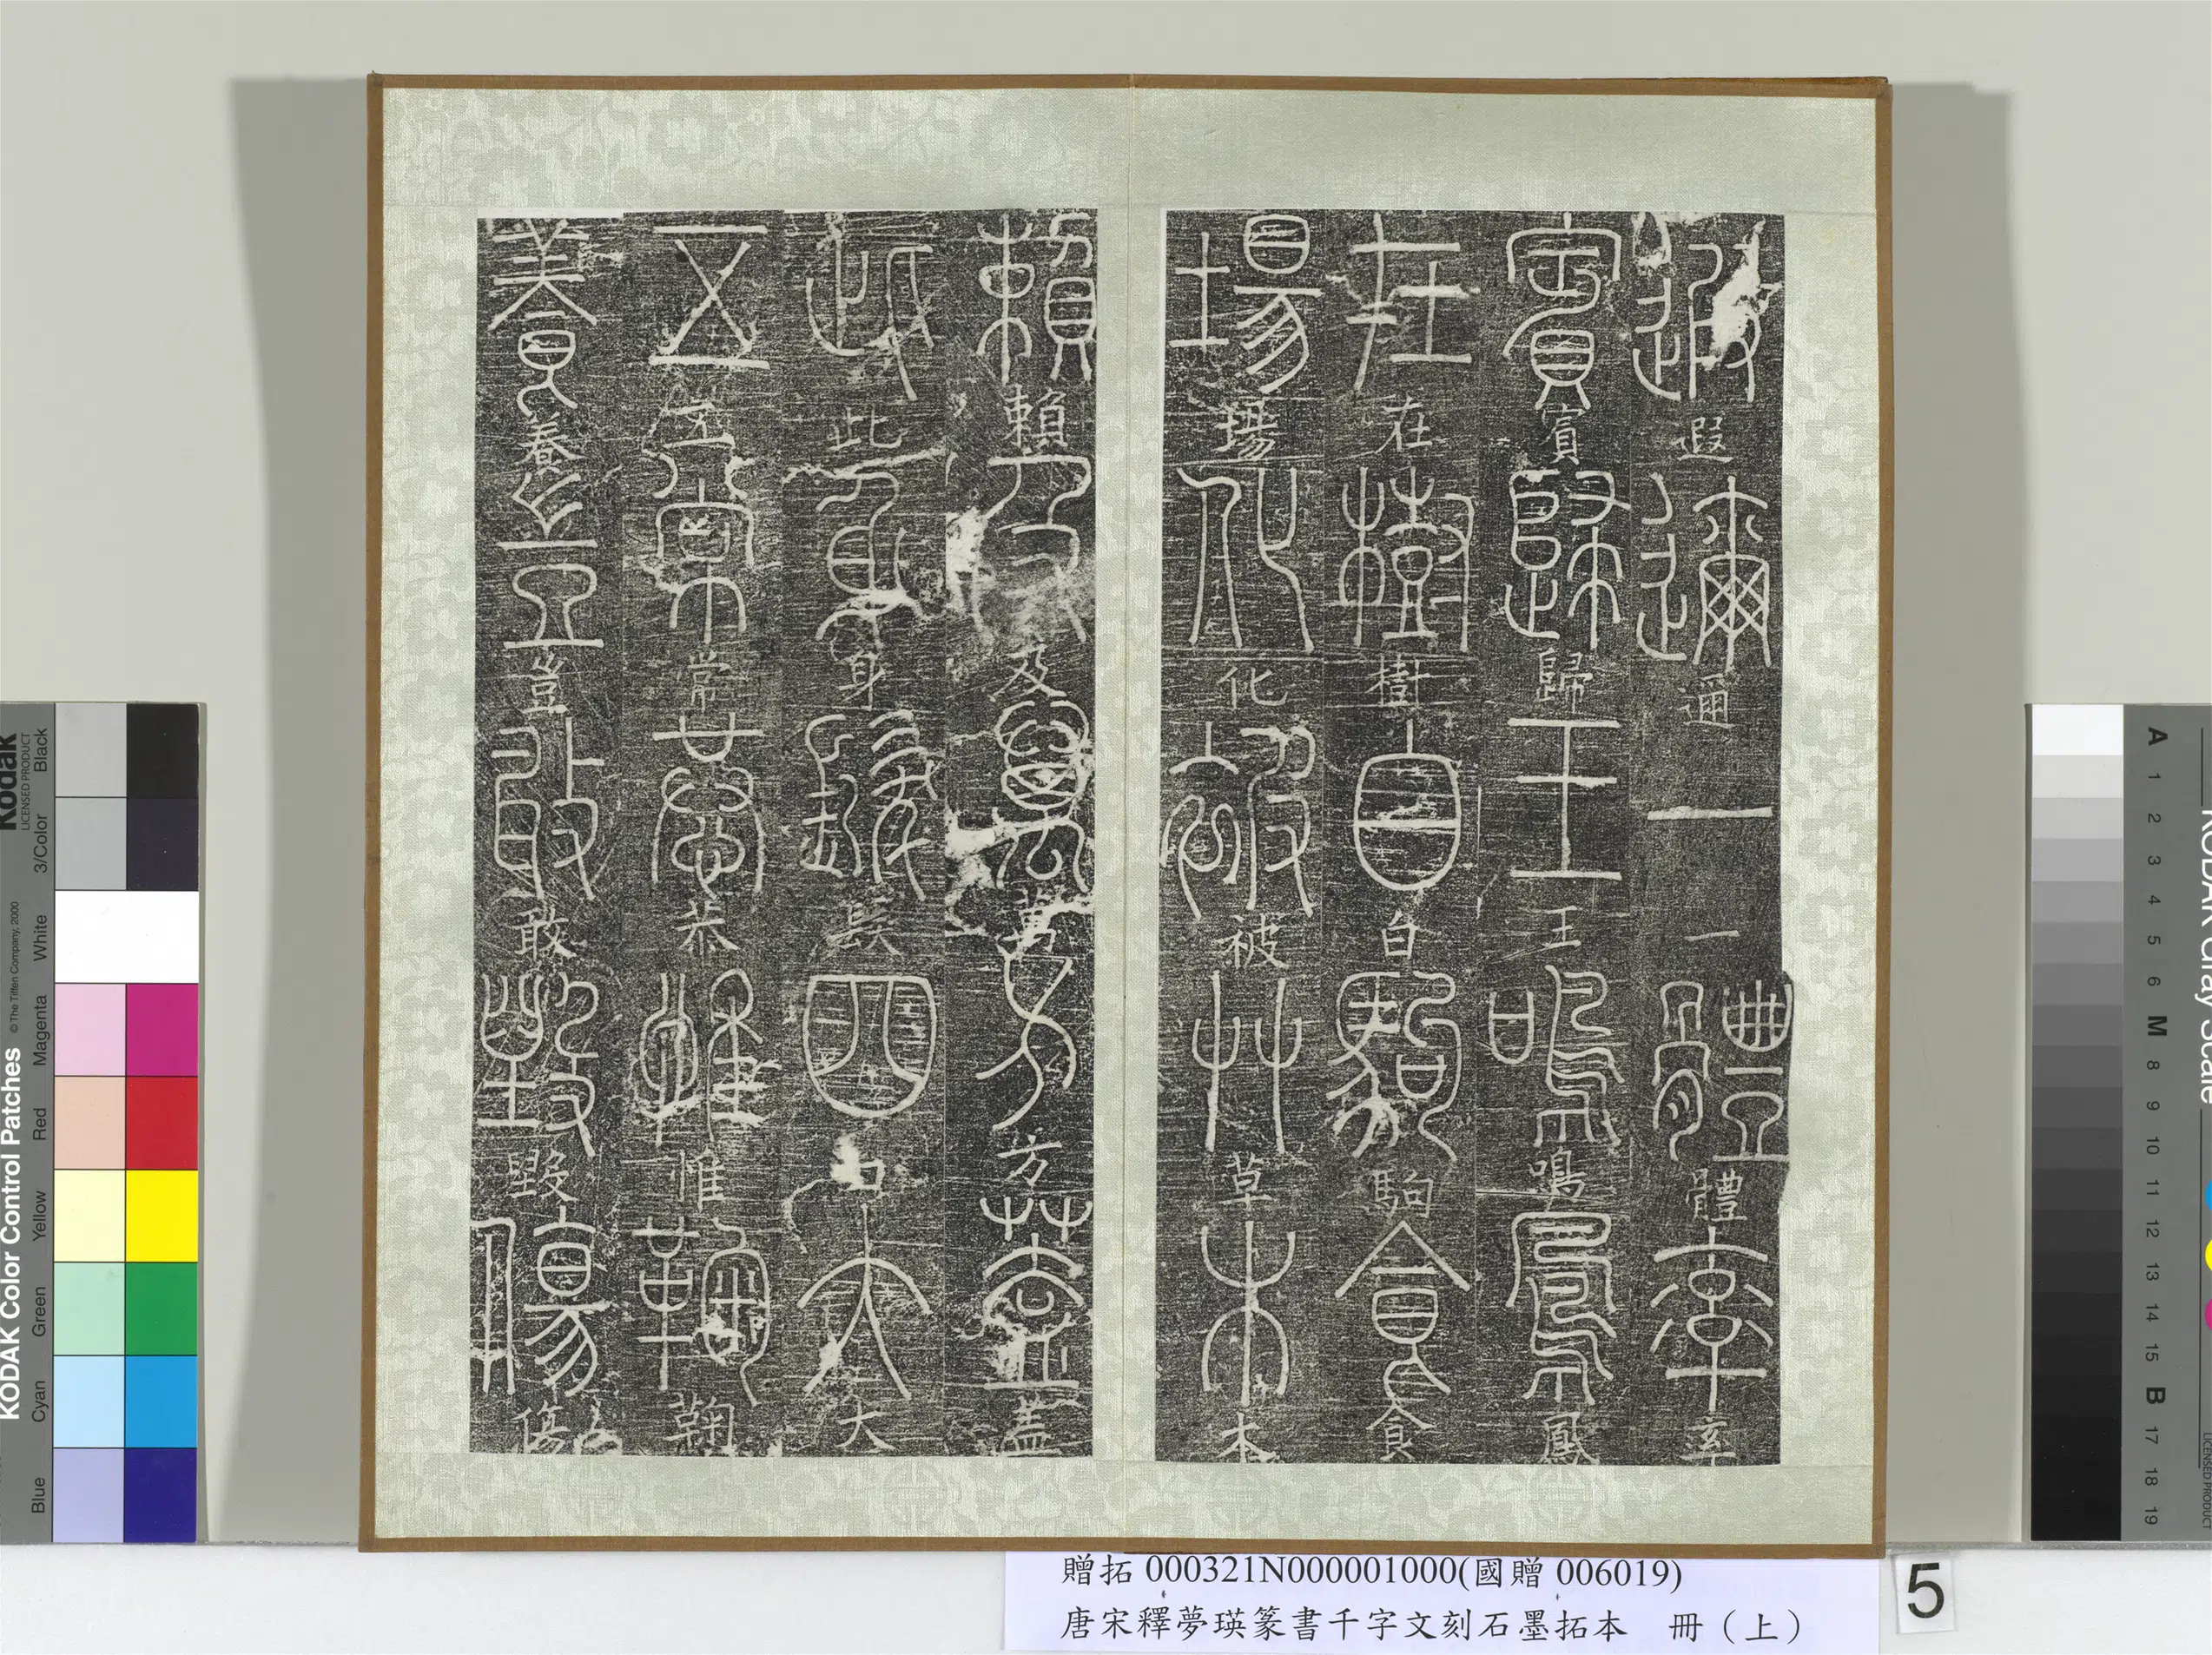 遐遐邇邇一一體體率率
賓賓歸歸王王鳴鳴鳳鳳
在在樹樹白白駒駒食食
場場化化被被草草木木
賴賴及及萬萬方方蓋蓋
此此身身髮髮四四大大
五五常常恭恭惟惟鞠鞠
養養豈豈敢敢毀毀傷傷
贈拓000321N000001000(國贈006019)
唐宋釋夢瑛篆書千字文刻石墨拓本 冊（上）
5
KODAK Color Control Patches
Kodak
LICENSED PRODUCT
© The Tiffen Company, 2000
Blue Cyan Green Yellow Red Magenta White 3/Color Black
KODAK Gray Scale
LICENSED PRODUCT
A 1 2 3 4 5 6 M 8 9 10 11 12 13 14 15 B 17 18 19